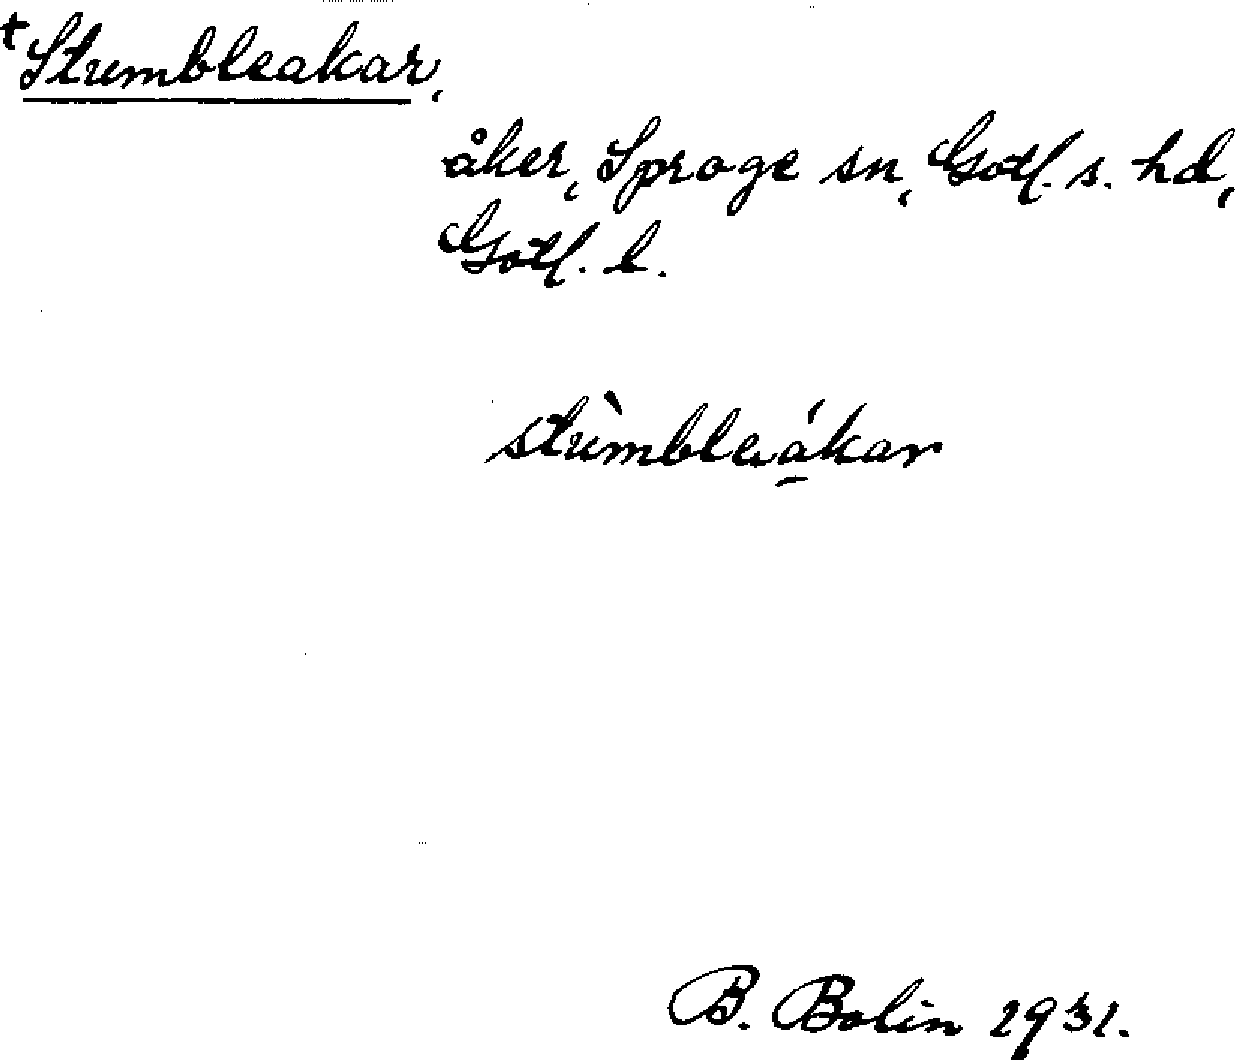 +Stumbleakar,
åker, Sproge sn, Gotl. s. hd,
Gotl. l.
stùmbleá̱kar
B. Bolin 1931.